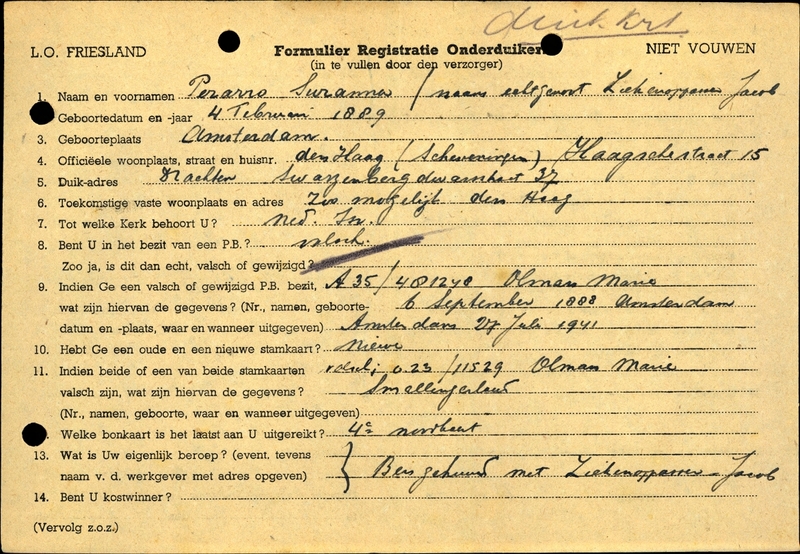 L.O. FRIESLAND Formulier Registratie Onderduiker NIET VOUWEN
(in te vullen door den verzorger)
1. Naam en voornamen Suzanna / naam echtgenoot Ziekenoppasser Jacob
Geboortedatum en -jaar 4 Februari 1889
3. Geboorteplaats Amsterdam.
4. Officiëele woonplaats, straat en huisnr. den Haag (Scheveningen) Haagschestraat 15
5. Duik-adres Drachten 37
6. Toekomstige vaste woonplaats en adres Zoo mogelijk den Haag
7. Tot welke Kerk behoort U? Ned. Isr.
8. Bent U in het bezit van een P.B.? valsch.
Zoo ja, is dit dan echt, valsch of gewijzigd?
9. Indien Ge een valsch of gewijzigd P.B. bezit, A 35/481248 Olman Marie
wat zijn hiervan de gegevens? (Nr., namen, geboorte- 6 September 1888 Amsterdam
datum en -plaats, waar en wanneer uitgegeven) Amsterdam 27 Juli 1941
10. Hebt Ge een oude en een nieuwe stamkaart? nieuwe
11. Indien beide of een van beide stamkaarten valsch; 0.23/11529 Olman Marie
valsch zijn, wat zijn hiervan de gegevens? Smallingerland
(Nr., namen, geboorte, waar en wanneer uitgegeven)
Welke bonkaart is het laatst aan U uitgereikt? 4e noodkaart
13. Wat is Uw eigenlijk beroep? (event. tevens
naam v. d. werkgever met adres opgeven) Ben gehuwd met Ziekenoppasser Jacob
14. Bent U kostwinner?
(Vervolg z.o.z.)